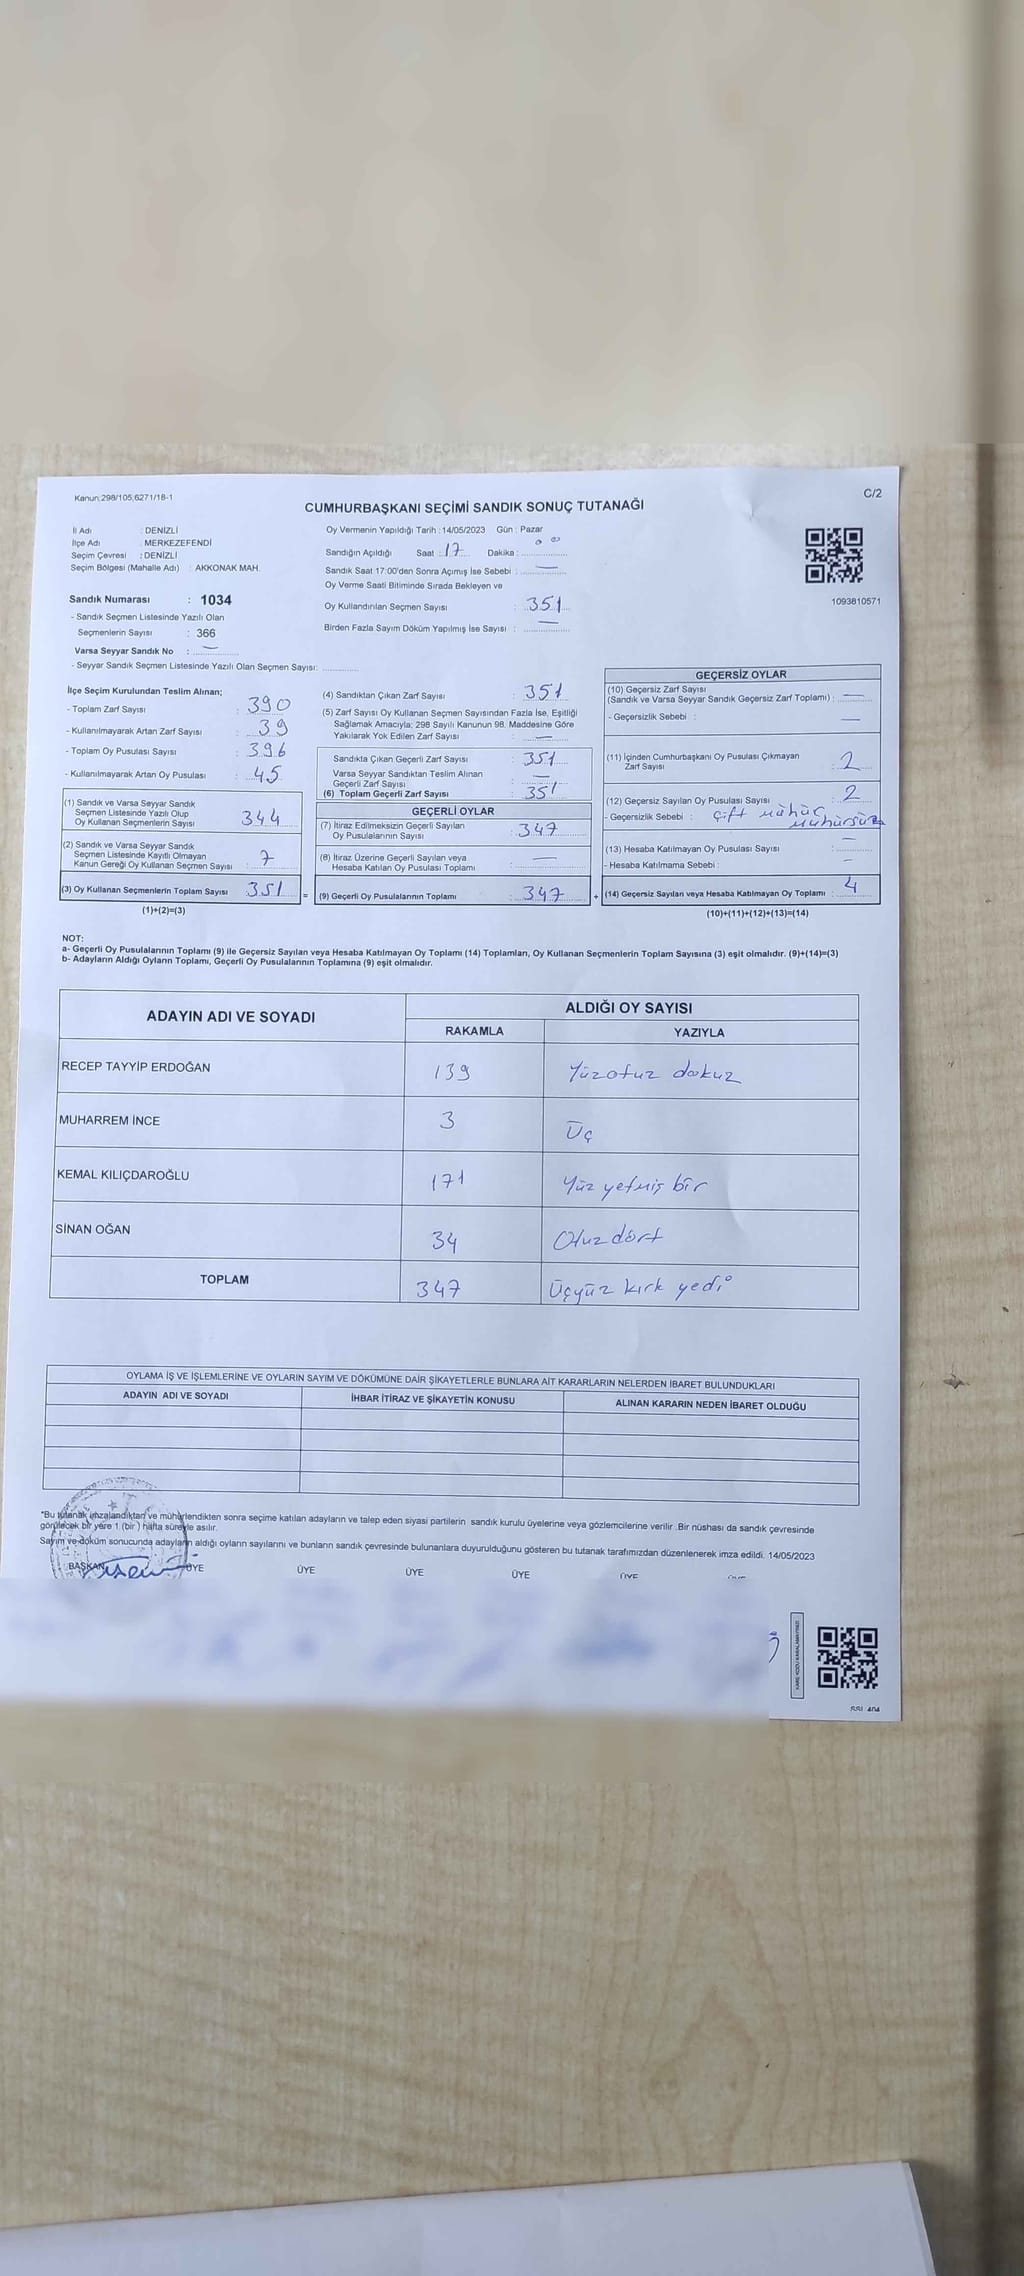 Kanun;298/105,6271/18-1
C/2
CUMHURBAŞKANI SEÇİMİ SANDIK SONUÇ TUTANAĞI
İl Adı : DENİZLİ
İlçe Adı : MERKEZEFENDİ
Seçim Çevresi : DENİZLİ
Seçim Bölgesi (Mahalle Adı) : AKKONAK MAH.
Sandık Numarası : 1034
- Sandık Seçmen Listesinde Yazılı Olan
Seçmenlerin Sayısı : 366
Varsa Seyyar Sandık No : —
- Seyyar Sandık Seçmen Listesinde Yazılı Olan Seçmen Sayısı:
Oy Vermenin Yapıldığı Tarih : 14/05/2023 Gün : Pazar
Sandığın Açıldığı Saat : 17 Dakika : 00
Sandık Saat 17:00'den Sonra Açımış İse Sebebi : —
Oy Verme Saati Bitiminde Sırada Bekleyen ve
Oy Kullandırılan Seçmen Sayısı : 351
Birden Fazla Sayım Döküm Yapılmış İse Sayısı : —
1093810571
İlçe Seçim Kurulundan Teslim Alınan;
- Toplam Zarf Sayısı : 390
- Kullanılmayarak Artan Zarf Sayısı : 39
- Toplam Oy Pusulası Sayısı : 396
- Kullanılmayarak Artan Oy Pusulası : 45
(1) Sandık ve Varsa Seyyar Sandık
Seçmen Listesinde Yazılı Olup
Oy Kullanan Seçmenlerin Sayısı : 344
(2) Sandık ve Varsa Seyyar Sandık
Seçmen Listesinde Kayıtlı Olmayan
Kanun Gereği Oy Kullanan Seçmen Sayısı : 7
(3) Oy Kullanan Seçmenlerin Toplam Sayısı : 351
(1)+(2)=(3)
(4) Sandıktan Çıkan Zarf Sayısı : 351
(5) Zarf Sayısı Oy Kullanan Seçmen Sayısından Fazla İse, Eşitliği
Sağlamak Amacıyla; 298 Sayılı Kanunun 98. Maddesine Göre
Yakılarak Yok Edilen Zarf Sayısı : —
Sandıkta Çıkan Geçerli Zarf Sayısı : 351
Varsa Seyyar Sandıktan Teslim Alınan
Geçerli Zarf Sayısı : —
(6) Toplam Geçerli Zarf Sayısı : 351
GEÇERLİ OYLAR
(7) İtiraz Edilmeksizin Geçerli Sayılan
Oy Pusulasının Sayısı : 347
(8) İtiraz Üzerine Geçerli Sayılan veya
Hesaba Katılan Oy Pusulası Toplamı : —
= (9) Geçerli Oy Pusulalarının Toplamı : 347 +
GEÇERSİZ OYLAR
(10) Geçersiz Zarf Sayısı
(Sandık ve Varsa Seyyar Sandık Geçersiz Zarf Toplamı) : —
- Geçersizlik Sebebi : —
(11) İçinden Cumhurbaşkanı Oy Pusulası Çıkmayan
Zarf Sayısı : 2
(12) Geçersiz Sayılan Oy Pusulası Sayısı : 2
- Geçersizlik Sebebi : çift mühür
mühürsüz
(13) Hesaba Katılmayan Oy Pusulası Sayısı : —
- Hesaba Katılmama Sebebi : —
(14) Geçersiz Sayılan veya Hesaba Katılmayan Oy Toplamı : 4
(10)+(11)+(12)+(13)=(14)
NOT:
a- Geçerli Oy Pusulalarının Toplamı (9) ile Geçersiz Sayılan veya Hesaba Katılmayan Oy Toplamı (14) Toplamları, Oy Kullanan Seçmenlerin Toplam Sayısına (3) eşit olmalıdır. (9)+(14)=(3)
b- Adayların Aldığı Oyların Toplamı, Geçerli Oy Pusulalarının Toplamına (9) eşit olmalıdır.
ADAYIN ADI VE SOYADI
ALDIĞI OY SAYISI
RAKAMLA YAZIYLA
RECEP TAYYİP ERDOĞAN 139 Yüzotuz dokuz
MUHARREM İNCE 3 Üç
KEMAL KILIÇDAROĞLU 171 Yüz yetmiş bir
SİNAN OĞAN 34 Otuz dört
TOPLAM 347 Üçyüz kırk yedi
OYLAMA İŞ VE İŞLEMLERİNE VE OYLARIN SAYIM VE DÖKÜMÜNE DAİR ŞİKAYETLERLE BUNLARA AİT KARARLARIN NELERDEN İBARET BULUNDUKLARI
ADAYIN ADI VE SOYADI İHBAR İTİRAZ VE ŞİKAYETİN KONUSU ALINAN KARARIN NEDEN İBARET OLDUĞU
*Bu tutanak imzalandıktan ve mühürlendikten sonra seçime katılan adayların ve talep eden siyasi partilerin sandık kurulu üyelerine veya gözlemcilerine verilir .Bir nüshası da sandık çevresinde
görülecek bir yere 1 (bir ) hafta süreyle asılır.
Sayım ve döküm sonucunda adayların aldığı oyların sayılarını ve bunların sandık çevresinde bulunanlara duyurulduğunu gösteren bu tutanak tarafımızdan düzenlenerek imza edildi. 14/05/2023
BAŞKAN ÜYE ÜYE ÜYE ÜYE ÜYE